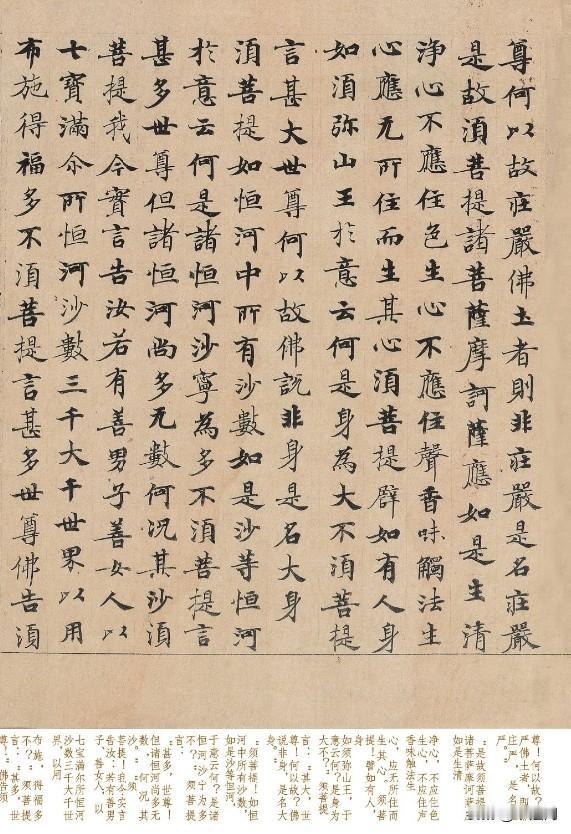 尊何以故庄嚴佛土者則非庄嚴是名庄嚴
是故湏菩提諸菩薩摩訶薩應如是生清
浄心不應住色生心不應住聲香味觸法生
心應无所住而生其心湏菩提辟如有人身
如湏弥山王於意云何是身為大不湏菩提
言甚大世尊何以故佛說非身是名大身
湏菩提如恒河中所有沙數如是沙等恒河
於意云何是諸恒河沙寧為多不湏菩提言
甚多世尊但諸恒河尚多无數何况其沙湏
菩提我今實言告汝若有善男子善女人以
七寶滿尒所恒河沙數三千大千世界以用
布施得福多不湏菩提言甚多世尊佛告湏
尊！何以故？庄
严佛土者，即非
庄严，是名庄
严。”
“是故须菩提，
诸菩萨摩诃萨应
如是生清
净心，不应住色
生心，不应住声
香味触法生
心，应无所住而
生其心。须菩
提！譬如有人，身
如须弥山王，于
意云何？是身为
大不？”须菩提
言：“甚大，世
尊！何以故？佛
说非身，是名大
身。”
“须菩提！如恒
河中所有沙数，
如是沙等恒河，
于意云何？是诸
恒河沙宁为多
不？”须菩提
言：
“甚多，世尊！
但诸恒河尚多无
数，何况其
沙。”“须
菩提！我今实言
告汝：若有善男
子、善女人，以
七宝满尔所恒河
沙数三千大千世
界，以用
布施，得福多
不？”须菩提
言：“甚多，世
尊！”佛告须